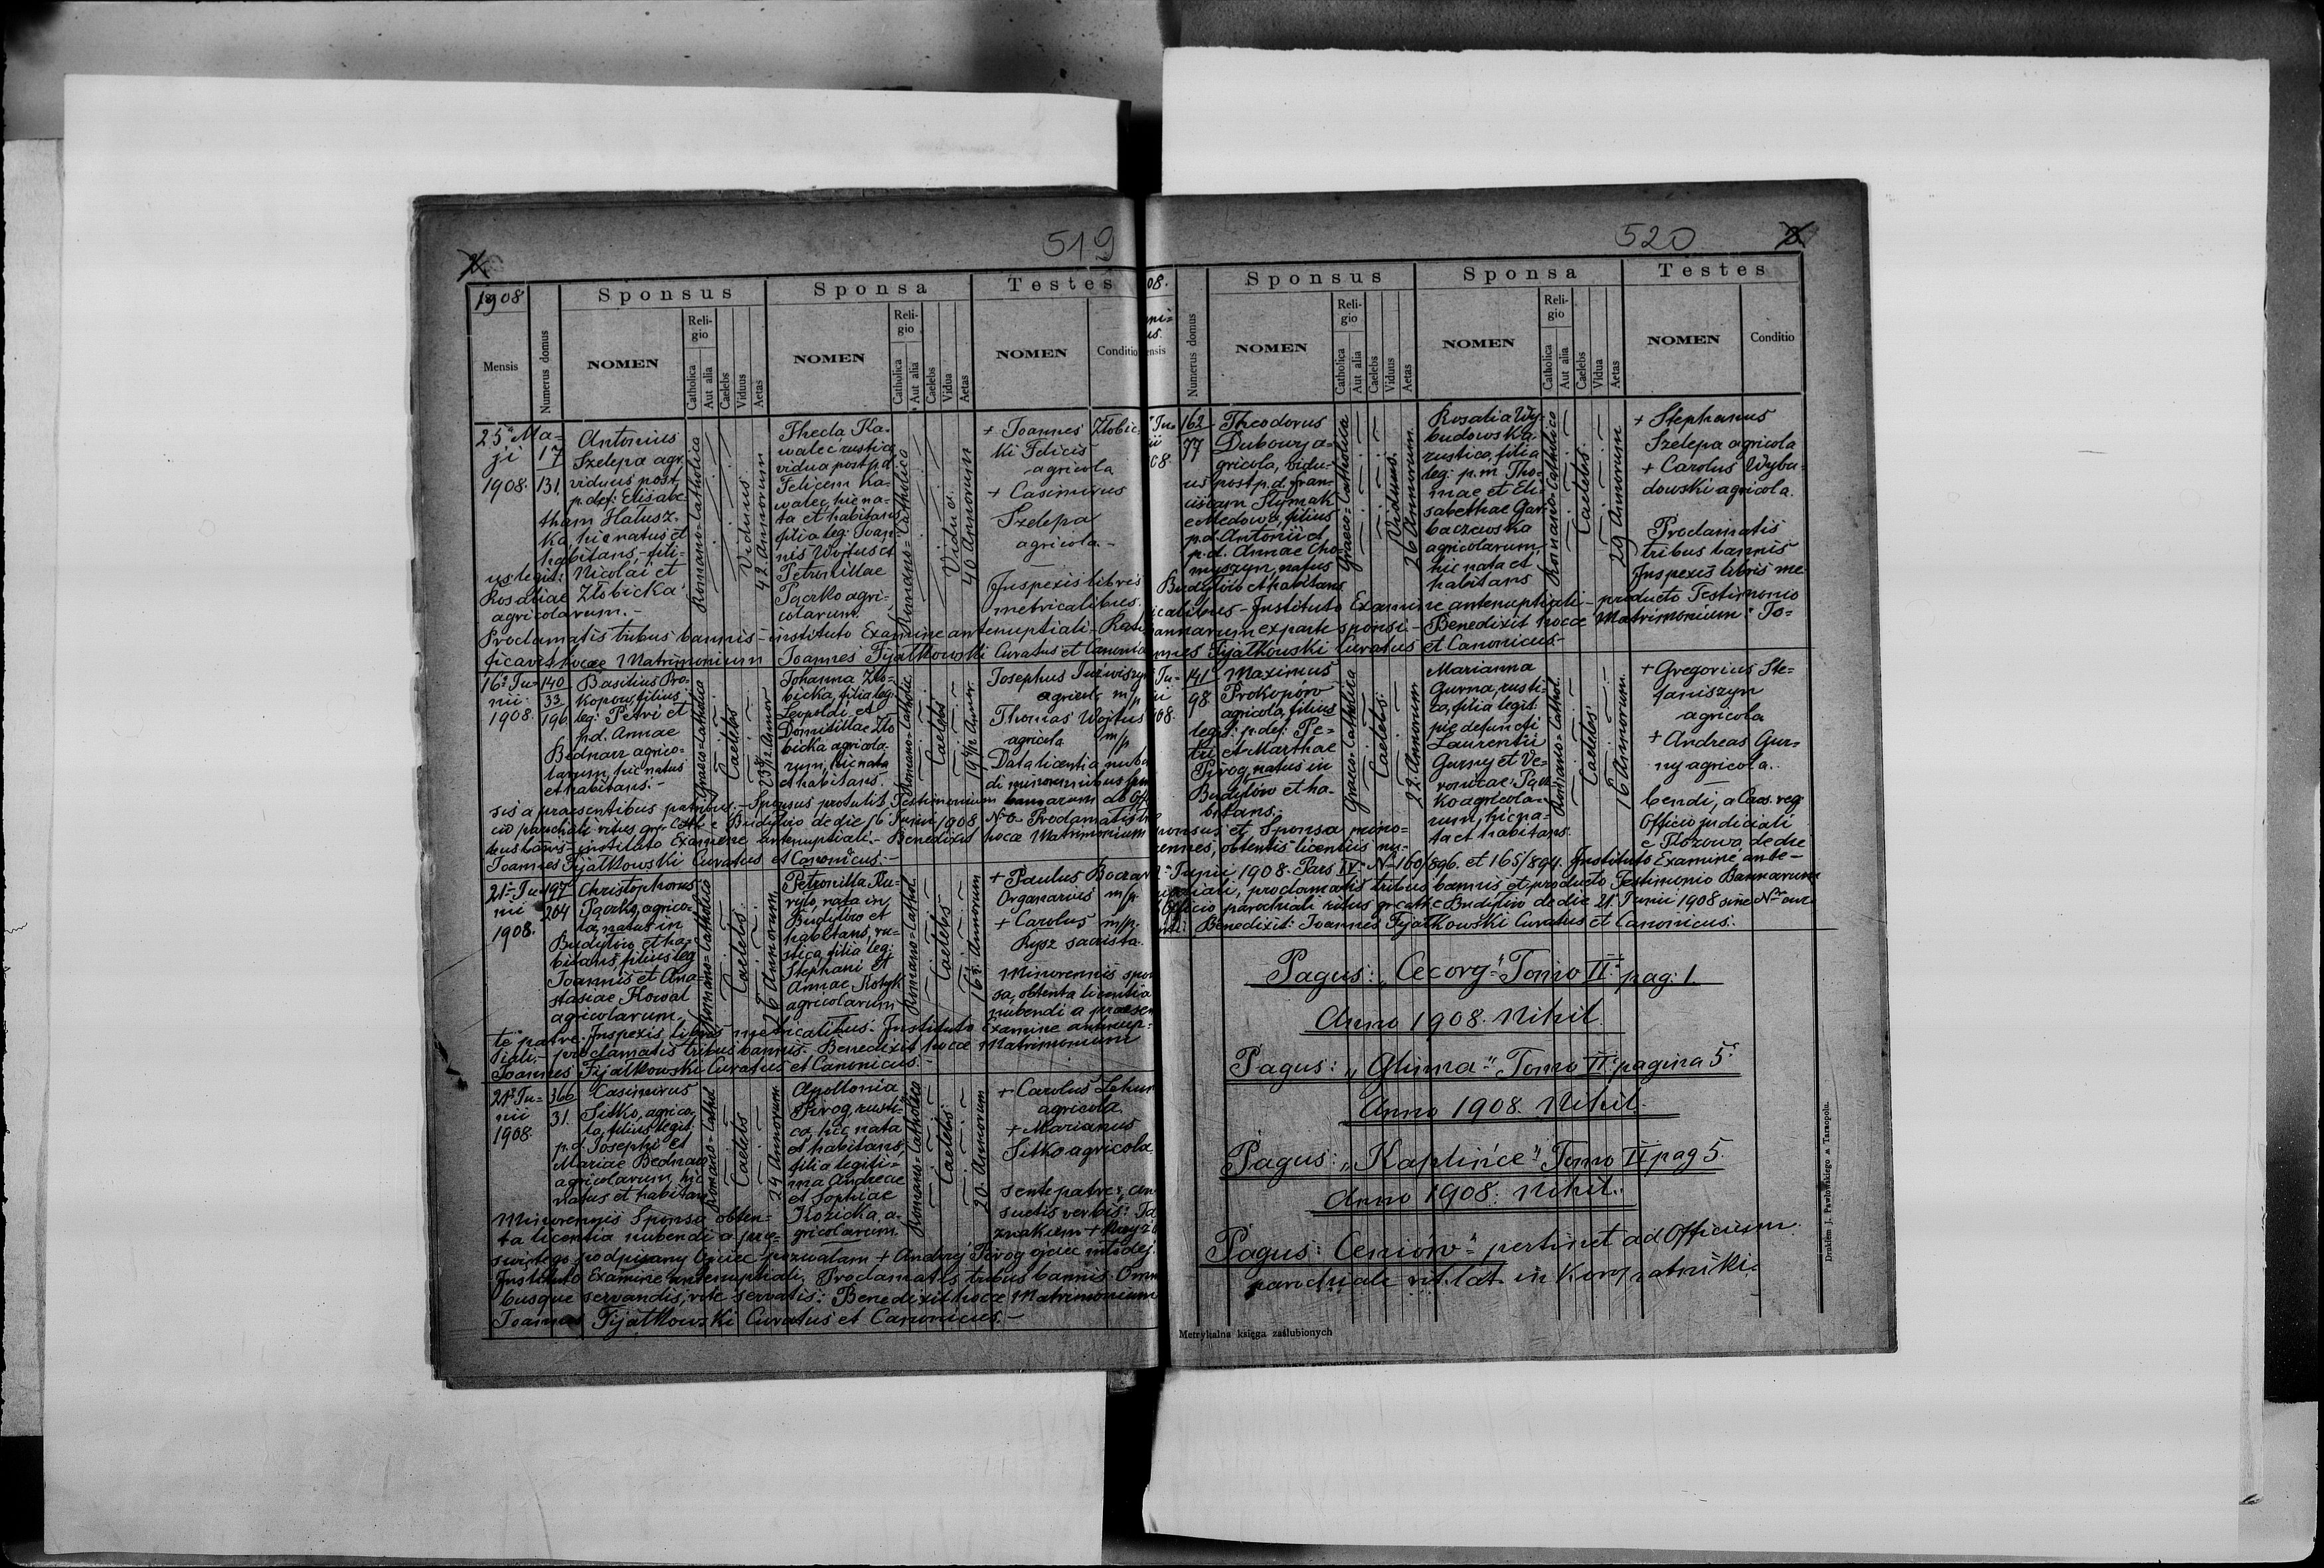 519
1908
Sponsus
Sponsa
Testes
Mensis
Numerus domus
NOMEN
Religio
Catholica
Aut alia
Caelebs
Viduus
Aetas
NOMEN
Religio
Catholica
Aut alia
Caelebs
Vidua
Aetas
NOMEN
Conditio
25a Ma-
ji
1908.
17
131
Antonius
Szelepa agr.
viduus post
p. def: Elisabe
tham Hałusz-
ka, hic natus et
habitans, - fili-
us legit: Nicolai et
Rosaliae Złobicka
agricolarum. -
Romano-Catholica
Viduus
42 Annorum
Thecla Ka-
walec rustica
vidua post p.d.
Felicem Ka-
walec, hic na-
ta et habitans
filia leg: Joan-
nis Wojtus et
Petronillae
Pączko agri-
colarum.
Romano-Catholica
Vidua.
40 Annorum
+ Joannes Złobic-
ki Felicis
agricola
+ Casimirus
Szelepa
agricola. -
Inspexis libris
metricalibus.
Proclamatis tribus bannis - instituto Examine antenuptiali - Rati
ficavit hocce Matrimonium Joannes Fijałkowski Curatus et Canonic
16a Ju-
nii
1908.
140
33
196
Basilius Pro-
kopow, filius
leg: Petri et
p.d. Annae
Bednarz agrico-
larum, hic natus
et habitans. -
Graeco-Catholica
Caelebs
Johanna Zło-
bicka, filia leg:
Leopoldi et
Domitillae Zło
bicka agricola-
rum, hic nata
et habitans. -
Romano-Catholic.
Caelebs
Josephus
agricol. m/p
Thomas Wojtus
agricola m/p
Data licentia nuben
di minorennibus
sis a praesentibus patribus. - Sponsus protulit Testimonium bannarum ab Offi
cio parochiali ritus gr. Cath. e Budyłów de die 16 Junii 1908 No - Proclamatis tri
bus bannis - instituto Examine antenuptiali. - Benedixit hocce Matrimonium
Joannes Fijałkowski Curatus et Canonicus. -
21a Ju-
nii
1908.
197
204
Christophorus
Pączko, agrico-
la, natus in
Budyłów et ha-
bitans, filius leg
Joannis et Ana-
stasiae Kowal
agricolarum.
Romano-Catholica
Caelebs.
26 Annorum
Petronilla Ku-
ryło, nata in
Budyłów et
habitans, ru-
stica, filia leg:
Stephani et
Annae Kotyk
agricolarum
Romano-Cathol.
Caelebs
16 Annorum
+ Paulus
Organarius m/p
+ Carolus m/p.
Rysz sacrista.
Minorennis spon
sa, obtenta licentia
nubendi a praesen
te patre. Inspexis libris metricalibus. Instituto Examine antenup-
tiali, - proclamatis tribus bannis. Benedixit hocce Matrimonium
Joannes Fijałkowski Curatus et Canonicus. -
21a Ju-
nii
1908.
366
31.
Casimirus
Sitko, agrico-
la, filius legit.
p.d. Josephi et
Mariae Bednarz
agricolarum, hic
natus et habitans
Romano-Cathol
Caelebs
24 Annorum
Apollonia
Pirog, rusti-
ca, hic nata
et habitans,
filia legiti-
ma Andreae
et Sophiae
Kozicka, a-
gricolarum.
Romano-Catholica
Caelebs.
20. Annorum
+ Carolus
agricola.
+ Marianus
Sitko agricola
Minorennis Sponsa obten-
ta licentia nubendi a prae-
sente patre;
suetis verbis:
znakiem + Krzyża
świętego podpisany Ojciec pozwalam + Andrzej Pirog ojciec młodej.
Instituto Examine antenuptiali. Proclamatis tribus bannis. Omni
busque servandis, rite servatis: Benedixit hocce Matrimonium
Joannes Fijałkowski Curatus et Canonicus. -
520
08.
Sponsus
Sponsa
Testes
Numerus domus
NOMEN
Religio
Catholica
Aut alia
Caelebs
Viduus
Aetas
NOMEN
Religio
Catholica
Aut alia
Caelebs
Vidua
Aetas
NOMEN
Conditio
162
77
Theodorus
Dubowy a-
gricola, vidu-
us post p.d. Fran-
ciscam Slymak
e Medowa, filius
p.d. Antonii et
p.d. Annae Cho-
myszyn, natus
Budyłów et habitans
Graeco-Catholica
Viduus.
26 Annorum.
Rosalia Wy-
budowska
rustica, filia
leg: p.m. Tho-
mae et Eli-
sabethae Gar-
baczewska
agricolarum,
hic nata et
habitans
Romano-Catholica
Caelebs.
29 Annorum
+ Stephanus
Szelepa agricola
+ Carolus Wybu-
dowski agricola.
Proclamatis
tribus bannis
Inspexis libris me
icalibus - Instituto Examine antenuptiali - producto Testimonio
annarum ex parte sponsi - Benedixit hocce Matrimonium: Jo-
nnes Fijałkowski Curatus et Canonicus. -
141
98
Maximus
Prokopów
agricola, filius
legit: p. def: Pe-
tri et Marthae
Pirog, natus in
Budyłów et ha-
bitans.
Graeco-Catholica
Caelebs.
22 Annorum
Marianna
Gurna, rusti-
ca, filia legit:
pie defuncti
Laurentii
Gurny et Ve-
ronicae Pącz-
ko agricola-
rum, hic na-
ta et habitans.
Romano-Cathol.
Caelebs.
16 Annorum.
+ Gregorius Ste-
faniszyn
agricola
+ Andreas Gur-
ny agricola.
ponsus et Sponsa mino-
rennes, obtentis licentiis nu-
bendi, a Caes. reg
Officio judiciali
e Kozowa, de die
Junii 1908. Pars IV. No 160/896. et 165/894. Instituto Examine ante-
nuptiali, proclamatis tribus bannis et producto Testimonio Bannarum
Officio parochiali ritus gr. cath. e Budyłów de die 21 Junii 1908 sine Nro
Benedixit: Joannes Fijałkowski Curatus et Canonicus.
Pagus: „Cecory" Tomo II. pag: 1.
Anno 1908. Nihil.
Pagus: „Glinna" Tomo II pagina 5.
Anno 1908. Nihil.
Pagus: „Kaplińce" Tomo II pag 5.
Anno 1908. Nihil.
Pagus: Ceniów" pertinet ad Officium
parochiale rit. lat. in
Metrykalna księga zaślubionych
Drukiem J. Pawłowskiego w Tarnopolu.